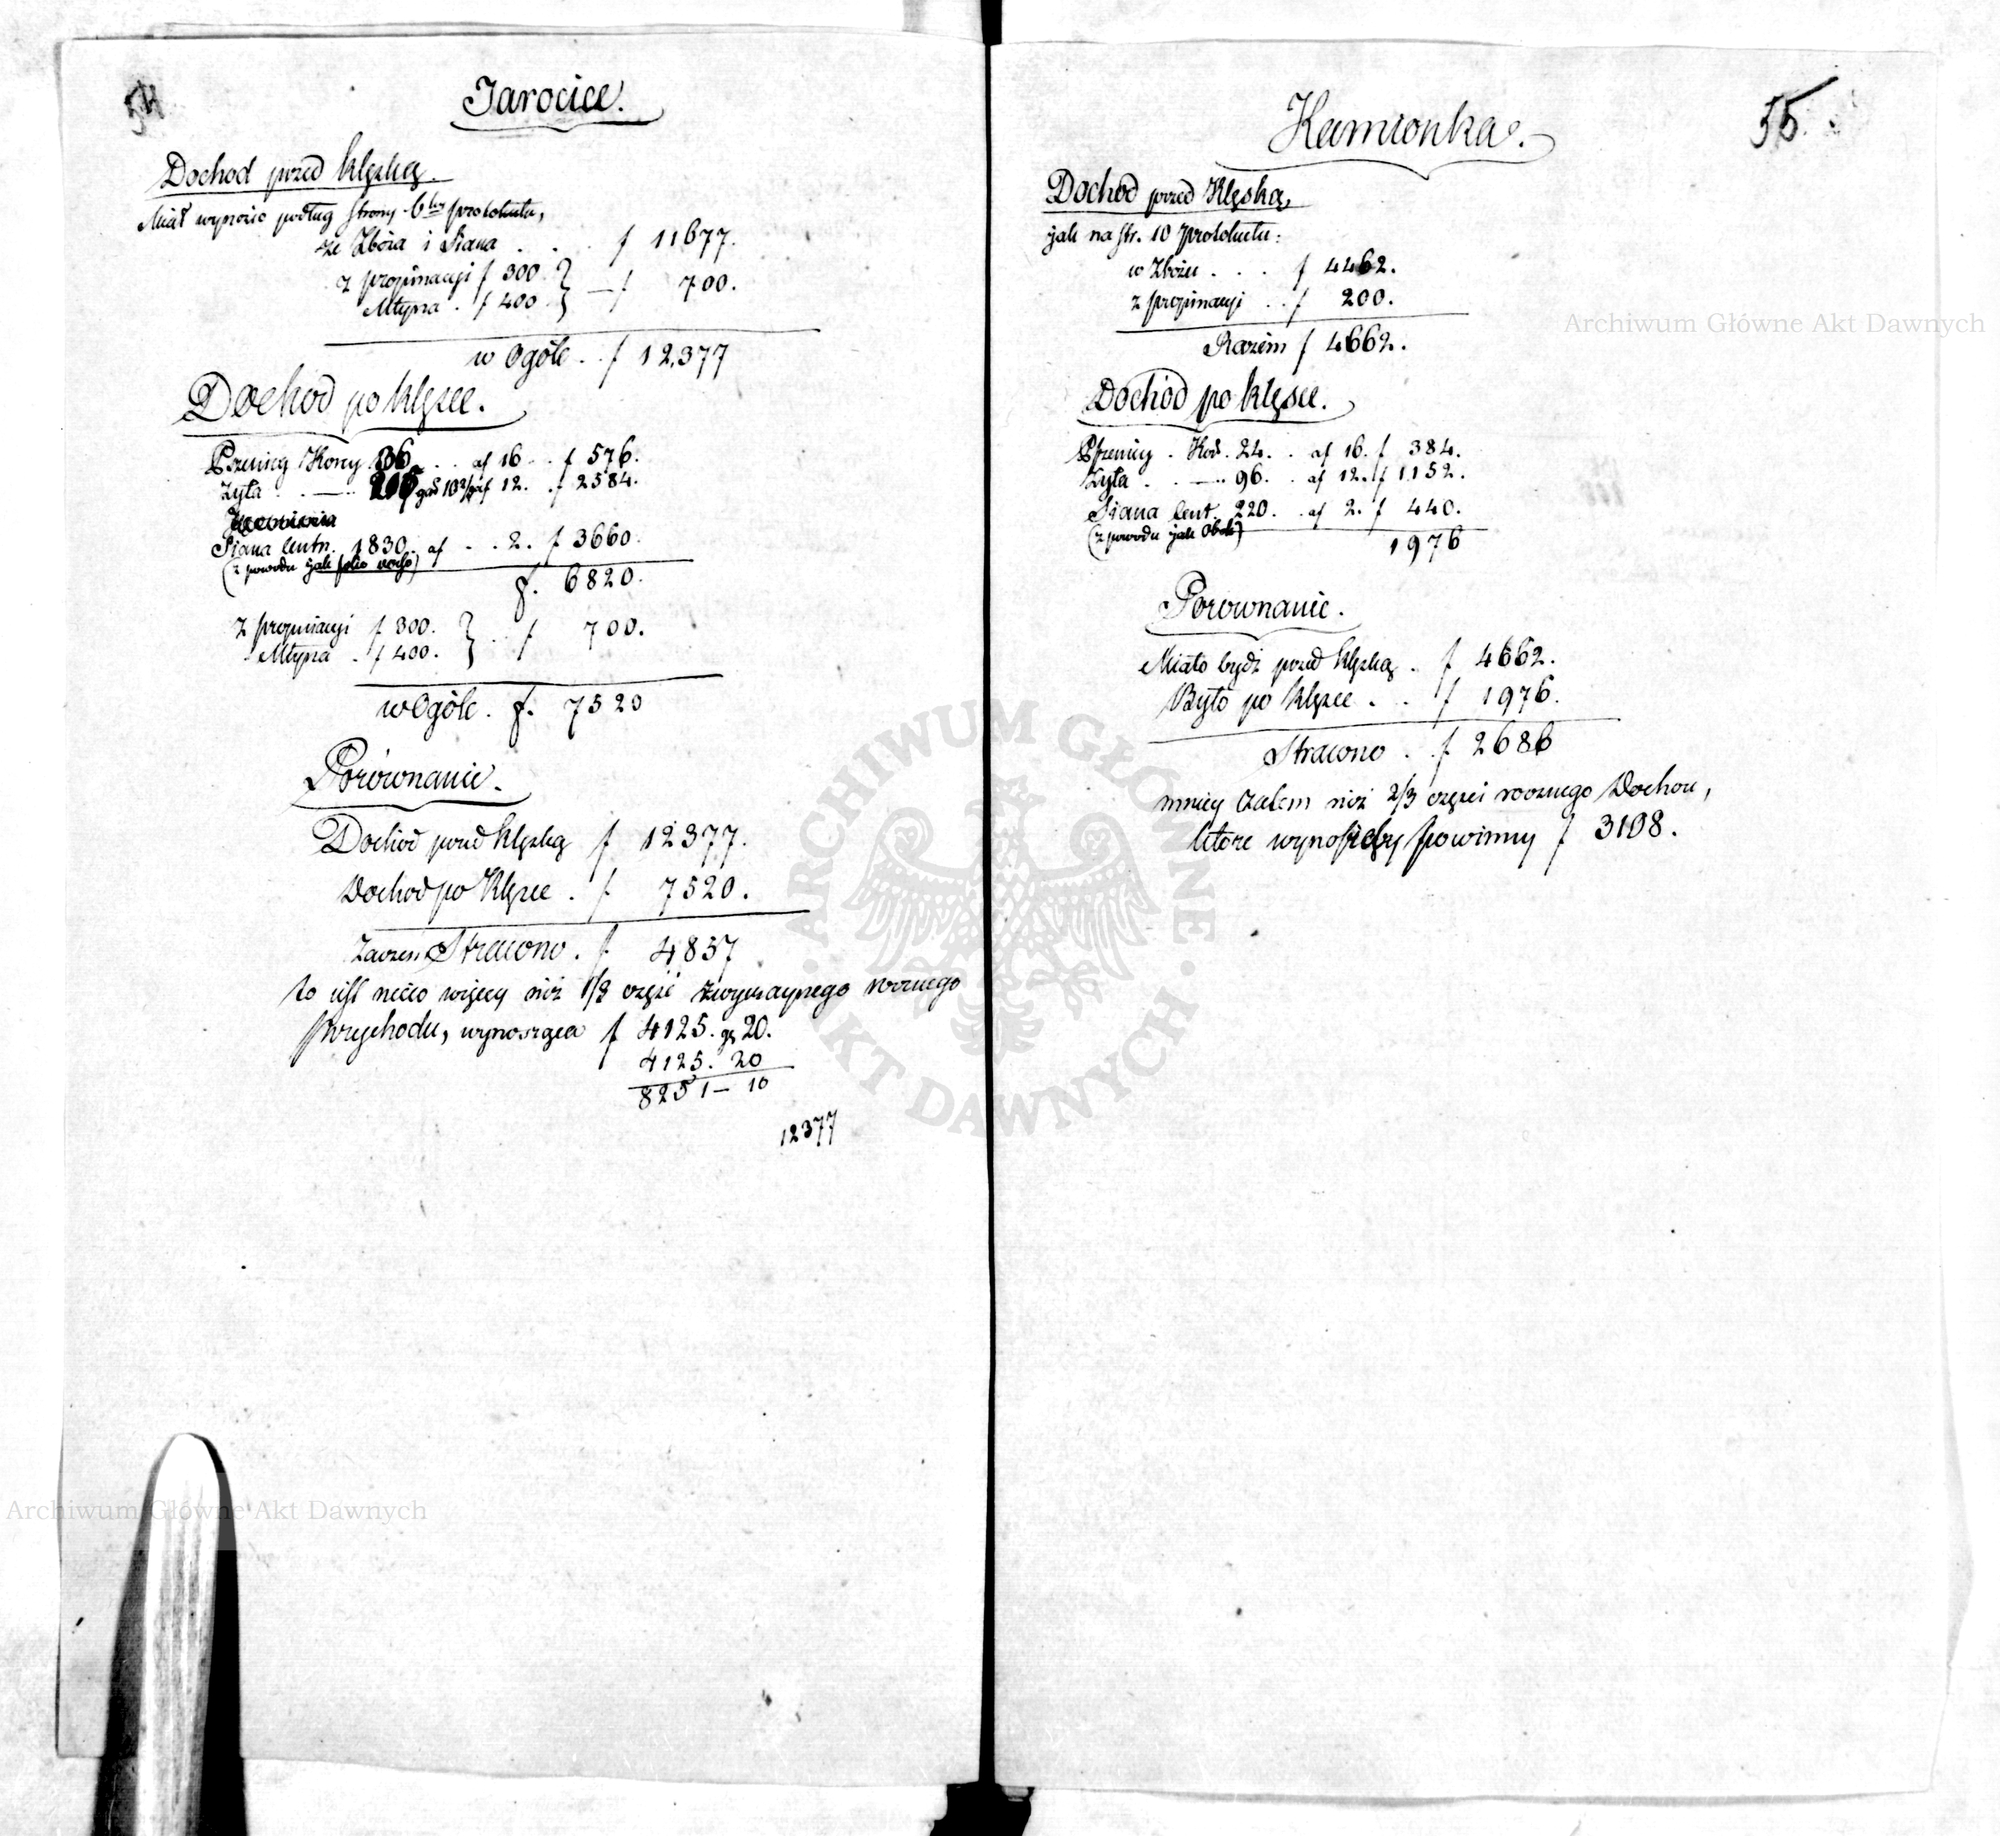 54
Jarocice.
Dochod przed klęską.
Miał wynosić podług strony 6tey protokułu,
ze Zboża i Siana . . . f 11677.
z propinacyi f 300. } — f 700.
Młyna . f 400
w Ogóle . . f 12,377
Dochod po klęsce.
Pszenicy Korcy 36 . . af 16 . . f 576.
Żyta . . — af 12. . f 2584.
Siana Centn. 1830. af . . 2. f 3660.
(z powodu jak folio verso)
f. 6820.
z propinacyi f 300. } . . f 700.
Młyna . f 400.
w Ogóle . f. 7520
Porównanie.
Dochód przed klęską f 12377.
Dochod po Klęsce . f 7520.
Zaczem Stracono . f 4857
to jest nieco więcey niż 1/3 część zwyczaynego rocznego
przychodu, wynosząca f 4125. gr 20.
4125. 20
8251 — 10
12377
55.
Kamionka.
Dochód przed Klęską,
jak na str. 10 protokułu:
w Zbożu . . . f 4462.
z propinacyi . . f 200.
Razem f 4662.
Dochód po klęsce.
Pszenicy . Kor. 24. . af 16. f 384.
Żyta . . — 96. . af 12. f 1152.
Siana Cent. 220. . af 2. f 440.
(z powodu jak Obok)
1976
Porownanie.
Miało bydź przed klęską . f 4662.
Było po klęsce . . f 1976.
Stracono . . f 2686
mniey zatem niż 2/3 części rocznego Dochou,
które wynosićby powinny f 3108.
Archiwum Główne Akt Dawnych
Archiwum Główne Akt Dawnych
· ARCHIWUM GŁÓWNE · AKT DAWNYCH